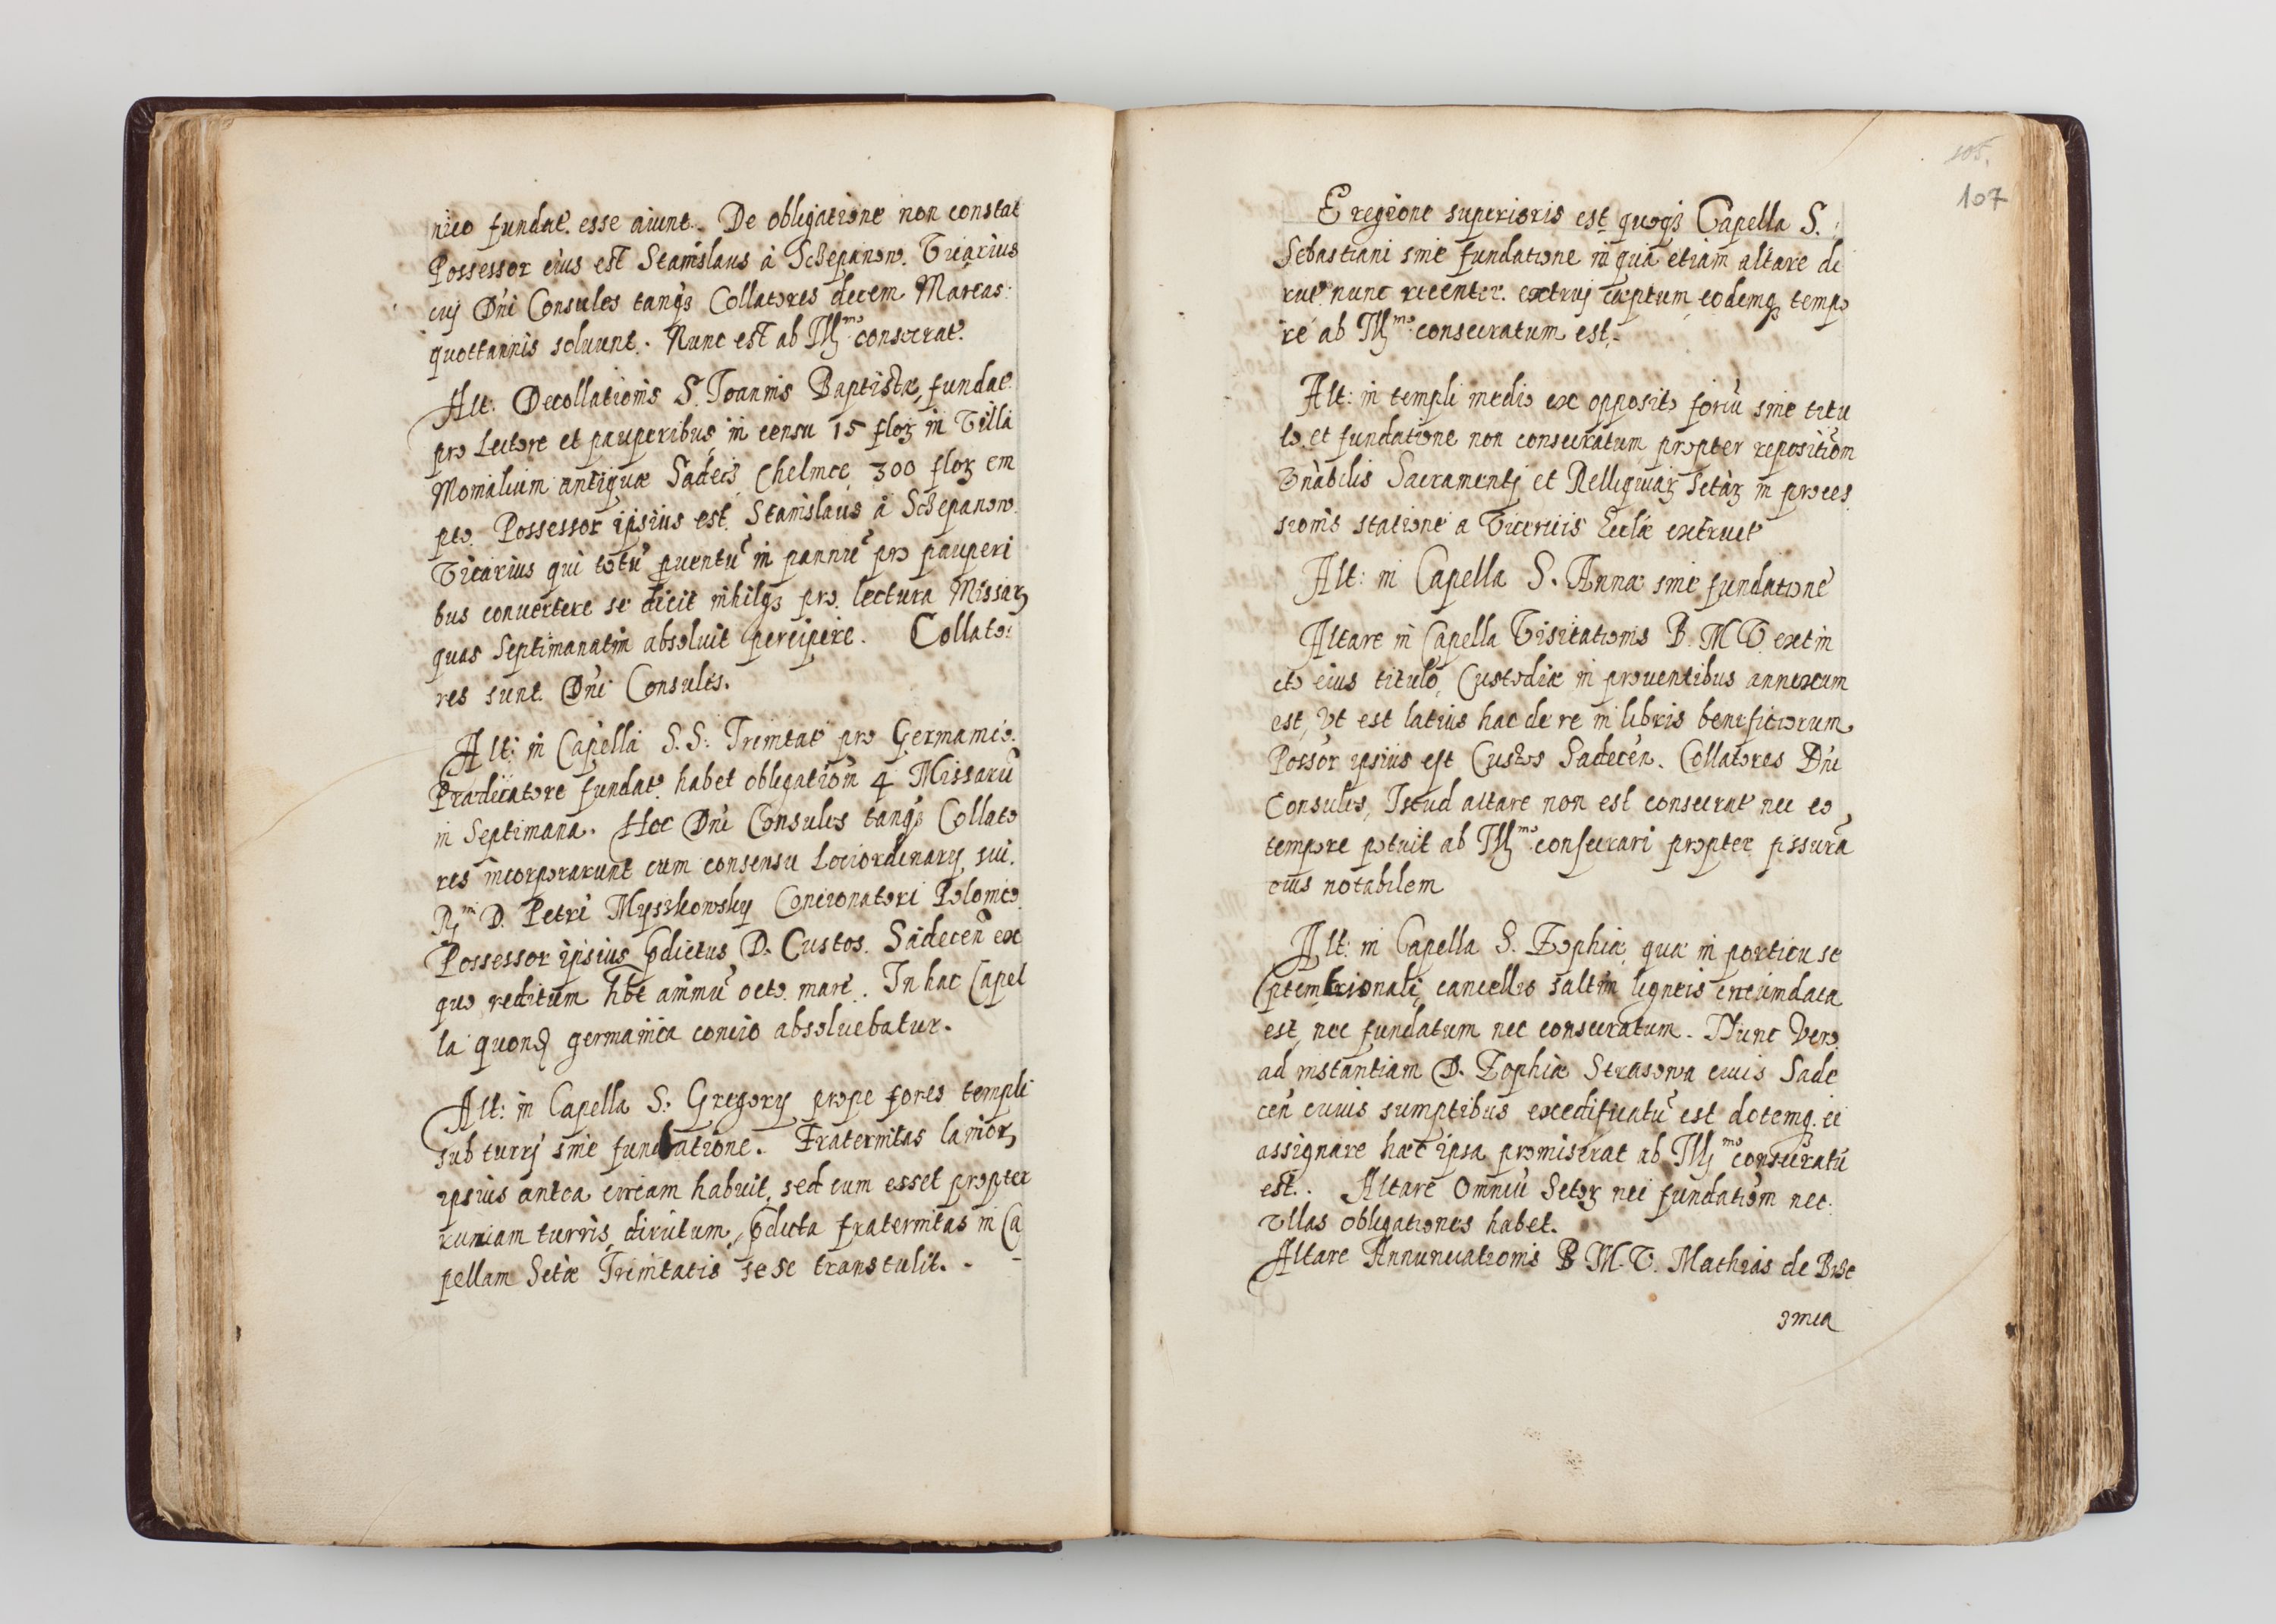 nico fundat. esse aiunt. De obligatione non constat
Possessor eius est Stanislaus à Sczepanow. Vicarius
cuj Dni Consules tanqȝ Collatores decem Marcas
quottannis soluunt. Nunc est ab Illmo consecrat.
Alt: Decollationis S. Joannis Baptistæ, fundat.
pro Lectore et pauperibus in censu 15 floꝝ in Villa
Monialium antiquæ Sadecȝ Chelmce 300 floꝝ em
pto. Possessor ipsius est Stanislaus à Sczepanow.
Vicarius qui totũ puentũ in pannũ pro pauperi
bus conuertere se dicit nihilqȝ pro lectura Missaꝝ
quas Septimanatim absoluit percipere. Collato:
res sunt Dni Consules.
Alt: in Capella S.S: Trinitat pro Germanico.
Prædicatore fundat. habet obligation 4 Missarũ
in Septimana. Hoc Dni Consules tanqȝ Collato
res incorporarunt cum consensu Lociordinarij sui.
Rmi D. Petri Myszkowsky Concionatori Polonico
Possessor ipsius pdictus D. Custos. Sadecen̄ ex
quo reditum hbt annuũ octo marc. In hac Capel
la quond germanica concio absoluebatur.
Alt: in Capella S: Gregorij prope fores templi
sub turrj sine fundatione. Fraternitas lanioꝝ
ipsius antea curam habuit, sed cum esset propter
ruinam turris dirutum, pdicta fraternitas in Ca
pellam Sctæ Trinitatis sese transtulit. -
105.
107
E regione superioris est quoqȝ Capella S.
Sebastiani sine fundatione in qua etiam altare di
rut. nunc recenter. extruj cæptum eodemqȝ tempo
re ab Illmo consecratum est.
Alt: in templi medio ex opposito foriũ sine titu
lo et fundatione non consecratum propter repositiom
Vnabilis Sacramentj et Relliquiaꝝ Sctaꝝ in proces
sionis statione a Vicerviis Eccliæ extruct
Alt: in Capella S. Annæ sine fundatione
Altare in Capella Visitationis B. M. V. extin
cto eius titulo, Custodiæ in prouentibus annexum
est, Vt est latius hac de re in libris beneficiorum
Possor ipsius est Custos Sadecen. Collatores Dni
Consules, Istud altare non est consecrat nec eo
tempore potuit ab Illmo consecrari propter fissurã
eius notabilem
Alt: in Capella S. Zophiæ, quæ in porticu se
ptemtrionali, cancellis saltim ligneis circumdata
est, nec fundatum nec consecratum. Nunc Vero
ad instantiam D. Zophiæ Strasowa ciuis Sade
cen̄ cuius sumptibus exedificatũ est dotemqȝ ei
assignare hæc ipsa promiserat ab Illmo consecratũ
est. Altare Omniũ Sctoꝝ nec fundatiom nec
Vllas obligationes habet.
Altare Annunciationis B. M. V. Mathias de Brze
znica